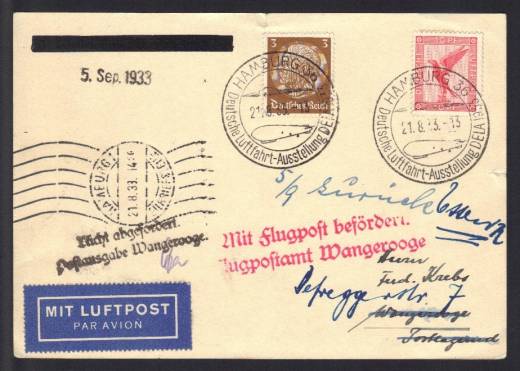 5. Sep. 1933
3
Deutsches Reich
10 PF
HAMBURG 36
21.8.33.
Deutsche Luftfahrt-Ausstellung DELA 1933
HAMBURG 36
21.8.33.-13
Deutsche Luftfahrt-Ausstellung DELA 1933
21.8.33.
5/9 Zurück Essen
Nicht abgefordert.
Postausgabe Wangerooge.
Mit Flugpost befördert.
Flugpostamt Wangerooge
Herrn
Ferd. Krebs
7
Wangerooge
Postlagernd
MIT LUFTPOST
PAR AVION